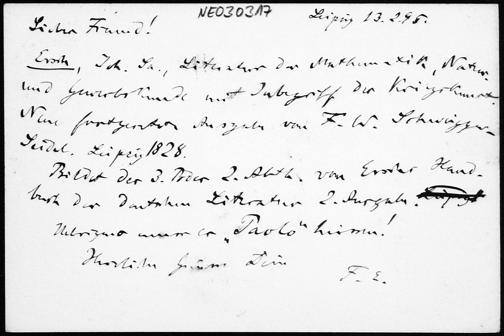 NE030317
Leipzig 13.2.95.
Lieber Freund!
Ersch, Joh. Sa., Literatur der Mathematik, Natur-
und Gewerbskunde mit Inbegriff der Kriegskunst
Neue fortgesetzte Ausgabe von F. W. Schweigger-
Seidel. Leipzig 1828.
Bildet der 3. 2. Abth. von Erschs Hand-
buch der Deutschen Literatur 2. Ausgabe.
Uebrigens muss er „Paolo“ heissen!
Herzliche Grüsse Dein
F. E.